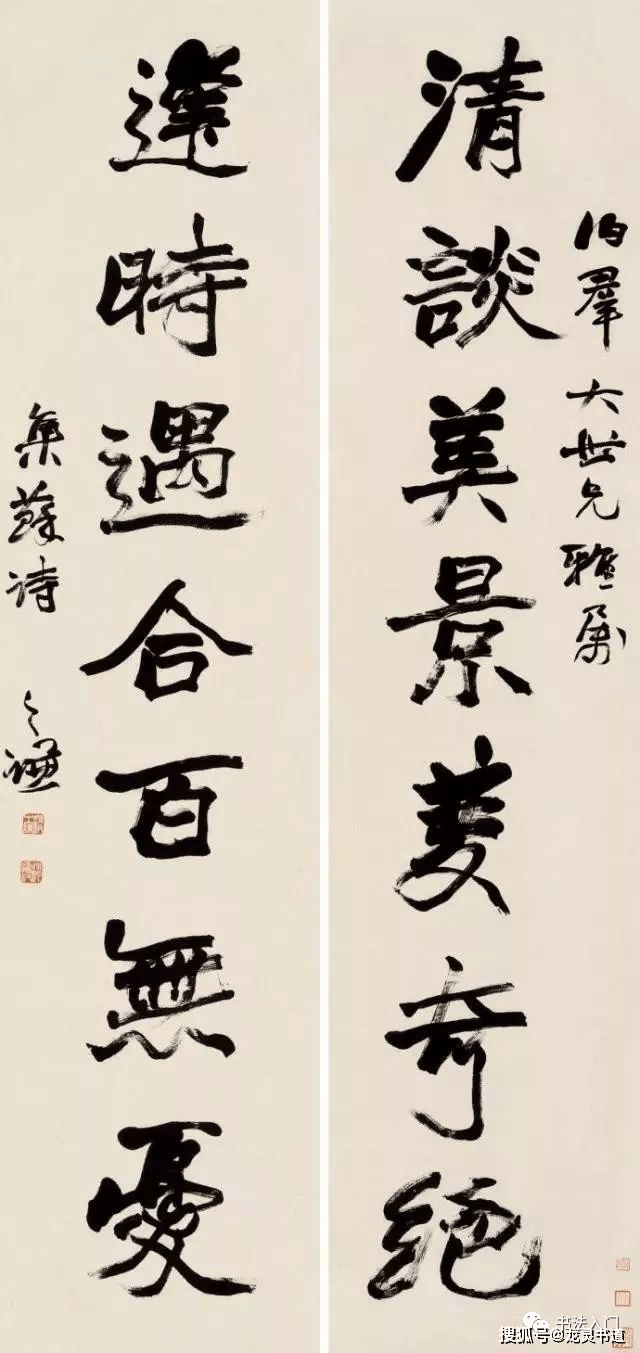 伯羣大世兄雅属
清談美景雙奇絕
逢時遇合百無憂
集蘇詩 之謙
书法入门
搜狐号@龙灵书道